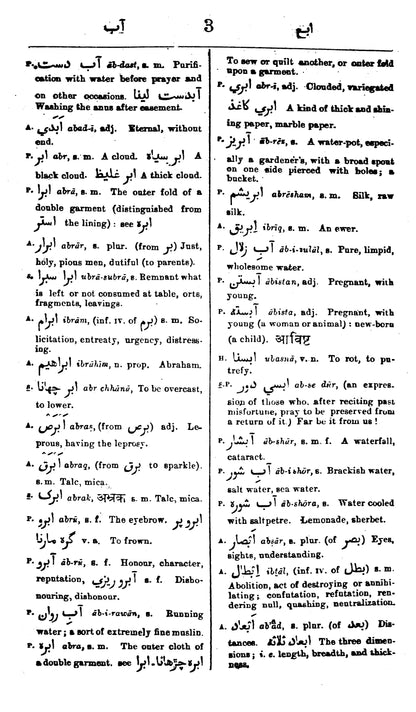 آب
3
ابع
P. آب دست āb-dast, s. m. Purifi-
cation with water before prayer and
on other occasions. آبدست لینا
Washing the anus after easement.
A. ابدي abad-ī, adj. Eternal, without
end.
P. ابر abr, s. m. A cloud. ابر سیاہ A
black cloud. ابر غلیظ A thick cloud.
P. ابرا abrā, s. m. The outer fold of a
double garment (distinguished from
استر the lining) : see ابرہ
A. ابرار abrār, s. plur. (from بر) Just,
holy, pious men, dutiful (to parents).
ابرا سبرا ubrā-subrā, s. Remnant what
is left or not consumed at table, orts,
fragments, leavings.
A. ابرام ibrām, (inf. IV. of برم) s. m. So-
licitation, entreaty, urgency, distress-
ing.
A. ابراهیم ibrāhīm, n. prop. Abraham.
ابر چهانا abr chhānā, To be overcast,
to lower.
A. ابرص abraṣ, (from برص) adj. Le-
prous, having the leprosy.
A. ابرق abraq, (from برق to sparkle).
s. m. Talc, mica.
ابرک abrak, अभ्रक s. m. Talc, mica.
P. ابرو abrū, s. f. The eyebrow. ابرو پر
گرہ مارنا v. a. To frown.
P. آبرو āb-rū, s. f. Honour, character,
reputation, آبرو ریزي s. f. Disho-
nouring, dishonour.
P. آب روان āb-i-rawān, s. Running
water ; a sort of extremely fine muslin.
P. ابرہ abra, s. m. The outer cloth of
a double garment. see ابرا۔ابرہ چڑهانا
To sew or quilt another, or outer fold
upon a garment.
P. ابري abr-ī, adj. Clouded, variegated
ابري کاغذ A kind of thick and shin-
ing paper, marble paper.
P. آبریز āb-rēs, s. A water-pot, especi-
ally a gardener's, with a broad spout
on one side pierced with holes ; a
bucket.
P. ابریشم abrēsham, s. m. Silk, raw
silk.
A. ابریق ibrīq, s. m. An ewer.
P. آب زلال āb-i-zulāl, s. Pure, limpid,
wholesome water.
P. آبستن ābistan, adj. Pregnant, with
young.
P. آبسته ābista, adj. Pregnant, with
young (a woman or animal) : new-born
(a child).
H. ابسنا ubasnā, v. n. To rot, to pu-
trefy.
ابسي دور ab-se dūr, (an expres-
sion of those who, after reciting past
misfortune, pray to be preserved from
a return of it.) Far be it from us !
P. آبشار āb-shār, s. m. f. A waterfall,
cataract.
P. آب شور āb-i shōr, s. Brackish water,
salt water, sea water.
P. آب شورہ āb-shōra, s. Water cooled
with saltpetre. Lemonade, sherbet.
A. ابصار abṣār, s. plur. (of بصر) Eyes,
sights, understanding.
A. ابطال ibṭāl, (inf. IV. of بطل) s. m.
Abolition, act of destroying or annihi-
lating ; confutation, refutation, ren-
dering null, quashing, neutralization.
A. ابعاد ab'ād, s. plur. (of بعد) Dis-
tances. ابعاد ثلاثه The three dimen-
sions ; i. e. length, breadth, and thick-
ness.